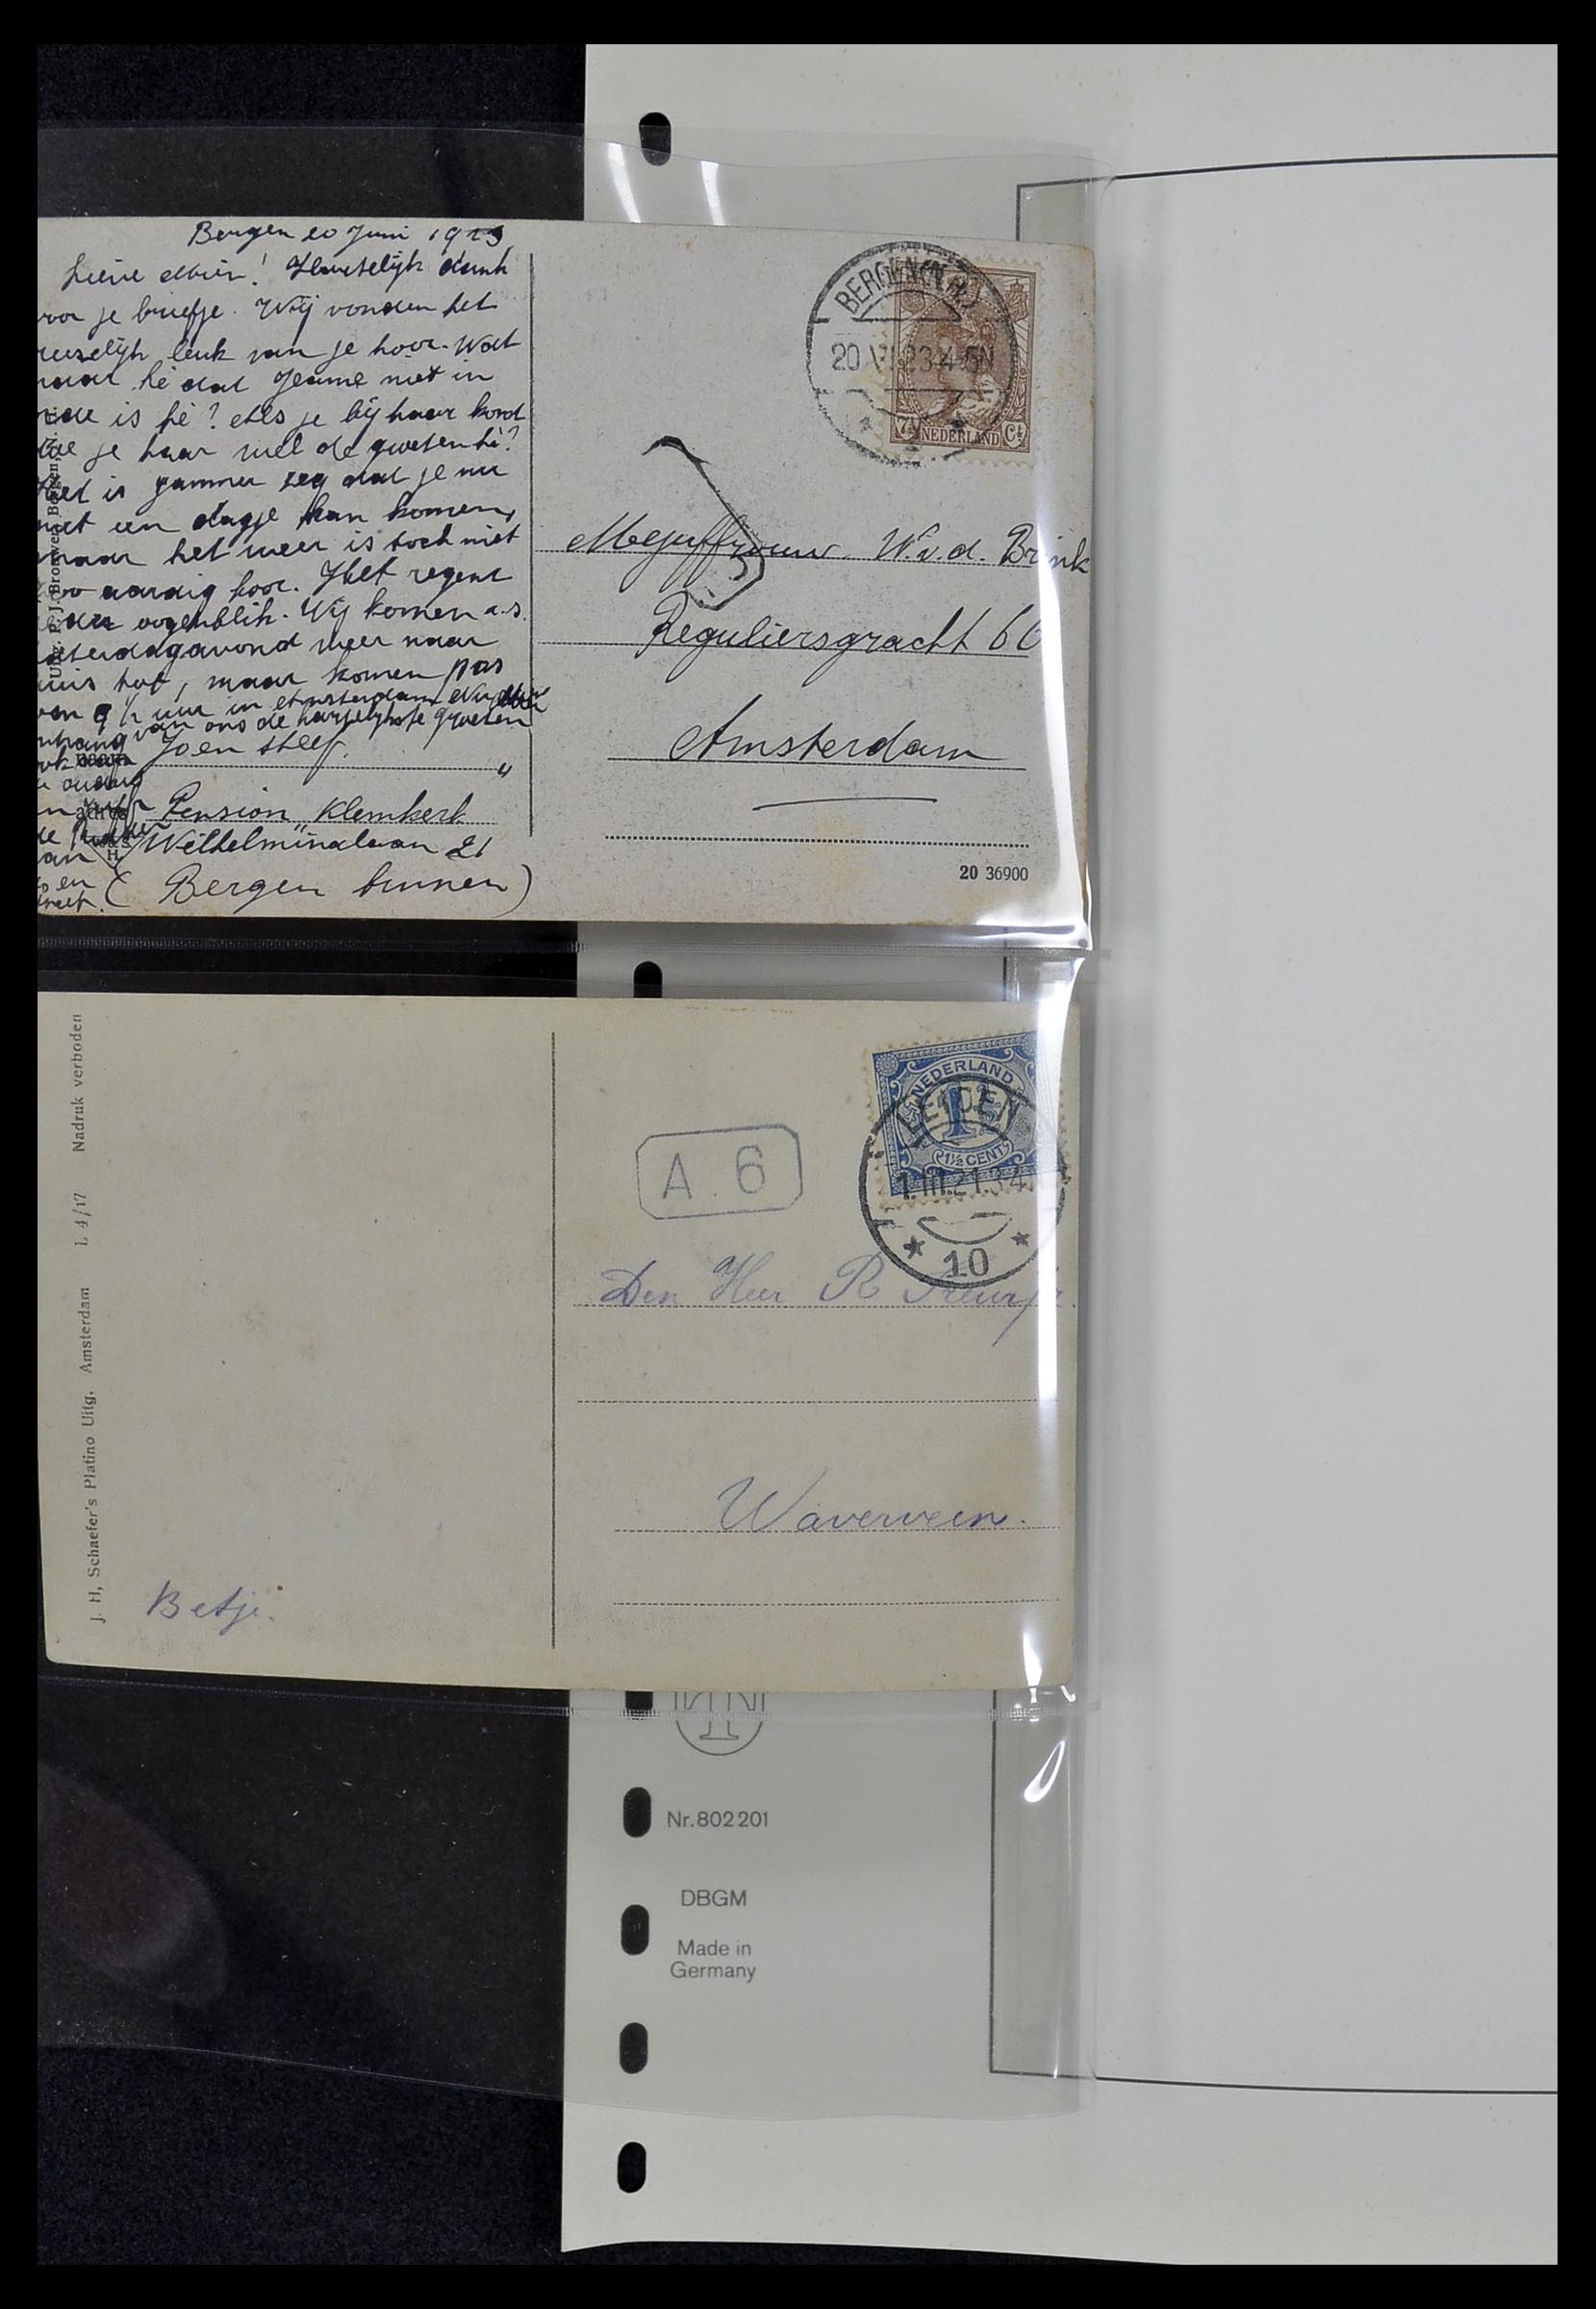 Bergen 20 Juni 1923
Lieve Mien! Hartelijk dank
voor je briefje. Wij vonden het
leuk van je hoor. Wat
hè dat Jeanne niet in
is hè? Als je bij haar komd
je haar wel de groeten hè?
is jammer zeg dat je nu
niet een dagje kan komen,
maar het weer is toch niet
zoo aardig hoor. Het regent
oogenblik. Wij komen a.s.
Zaterdagavond weer naar
huis toe, maar komen pas
uur in Amsterdam
van ons de hartelijkste groeten
Jo en Steef.
Pension "Klemkerk"
Wilhelminalaan 21
(Bergen binnen)
BERGEN (N.H.)
20 VI 23 4-5N
7½ NEDERLAND Ct
Mejuffrouw W. v. d. Brink
Reguliersgracht 66
Amsterdam
20 36900
J. H. Schaefer's Platino Uitg. Amsterdam L 4/17 Nadruk verboden
Betje.
NEDERLAND
1½
1½ CENT
LEIDEN
1.III.21.3-4
10
A. 6
Den Heer R
Waverveen.
Nr. 802 201
DBGM
Made in
Germany